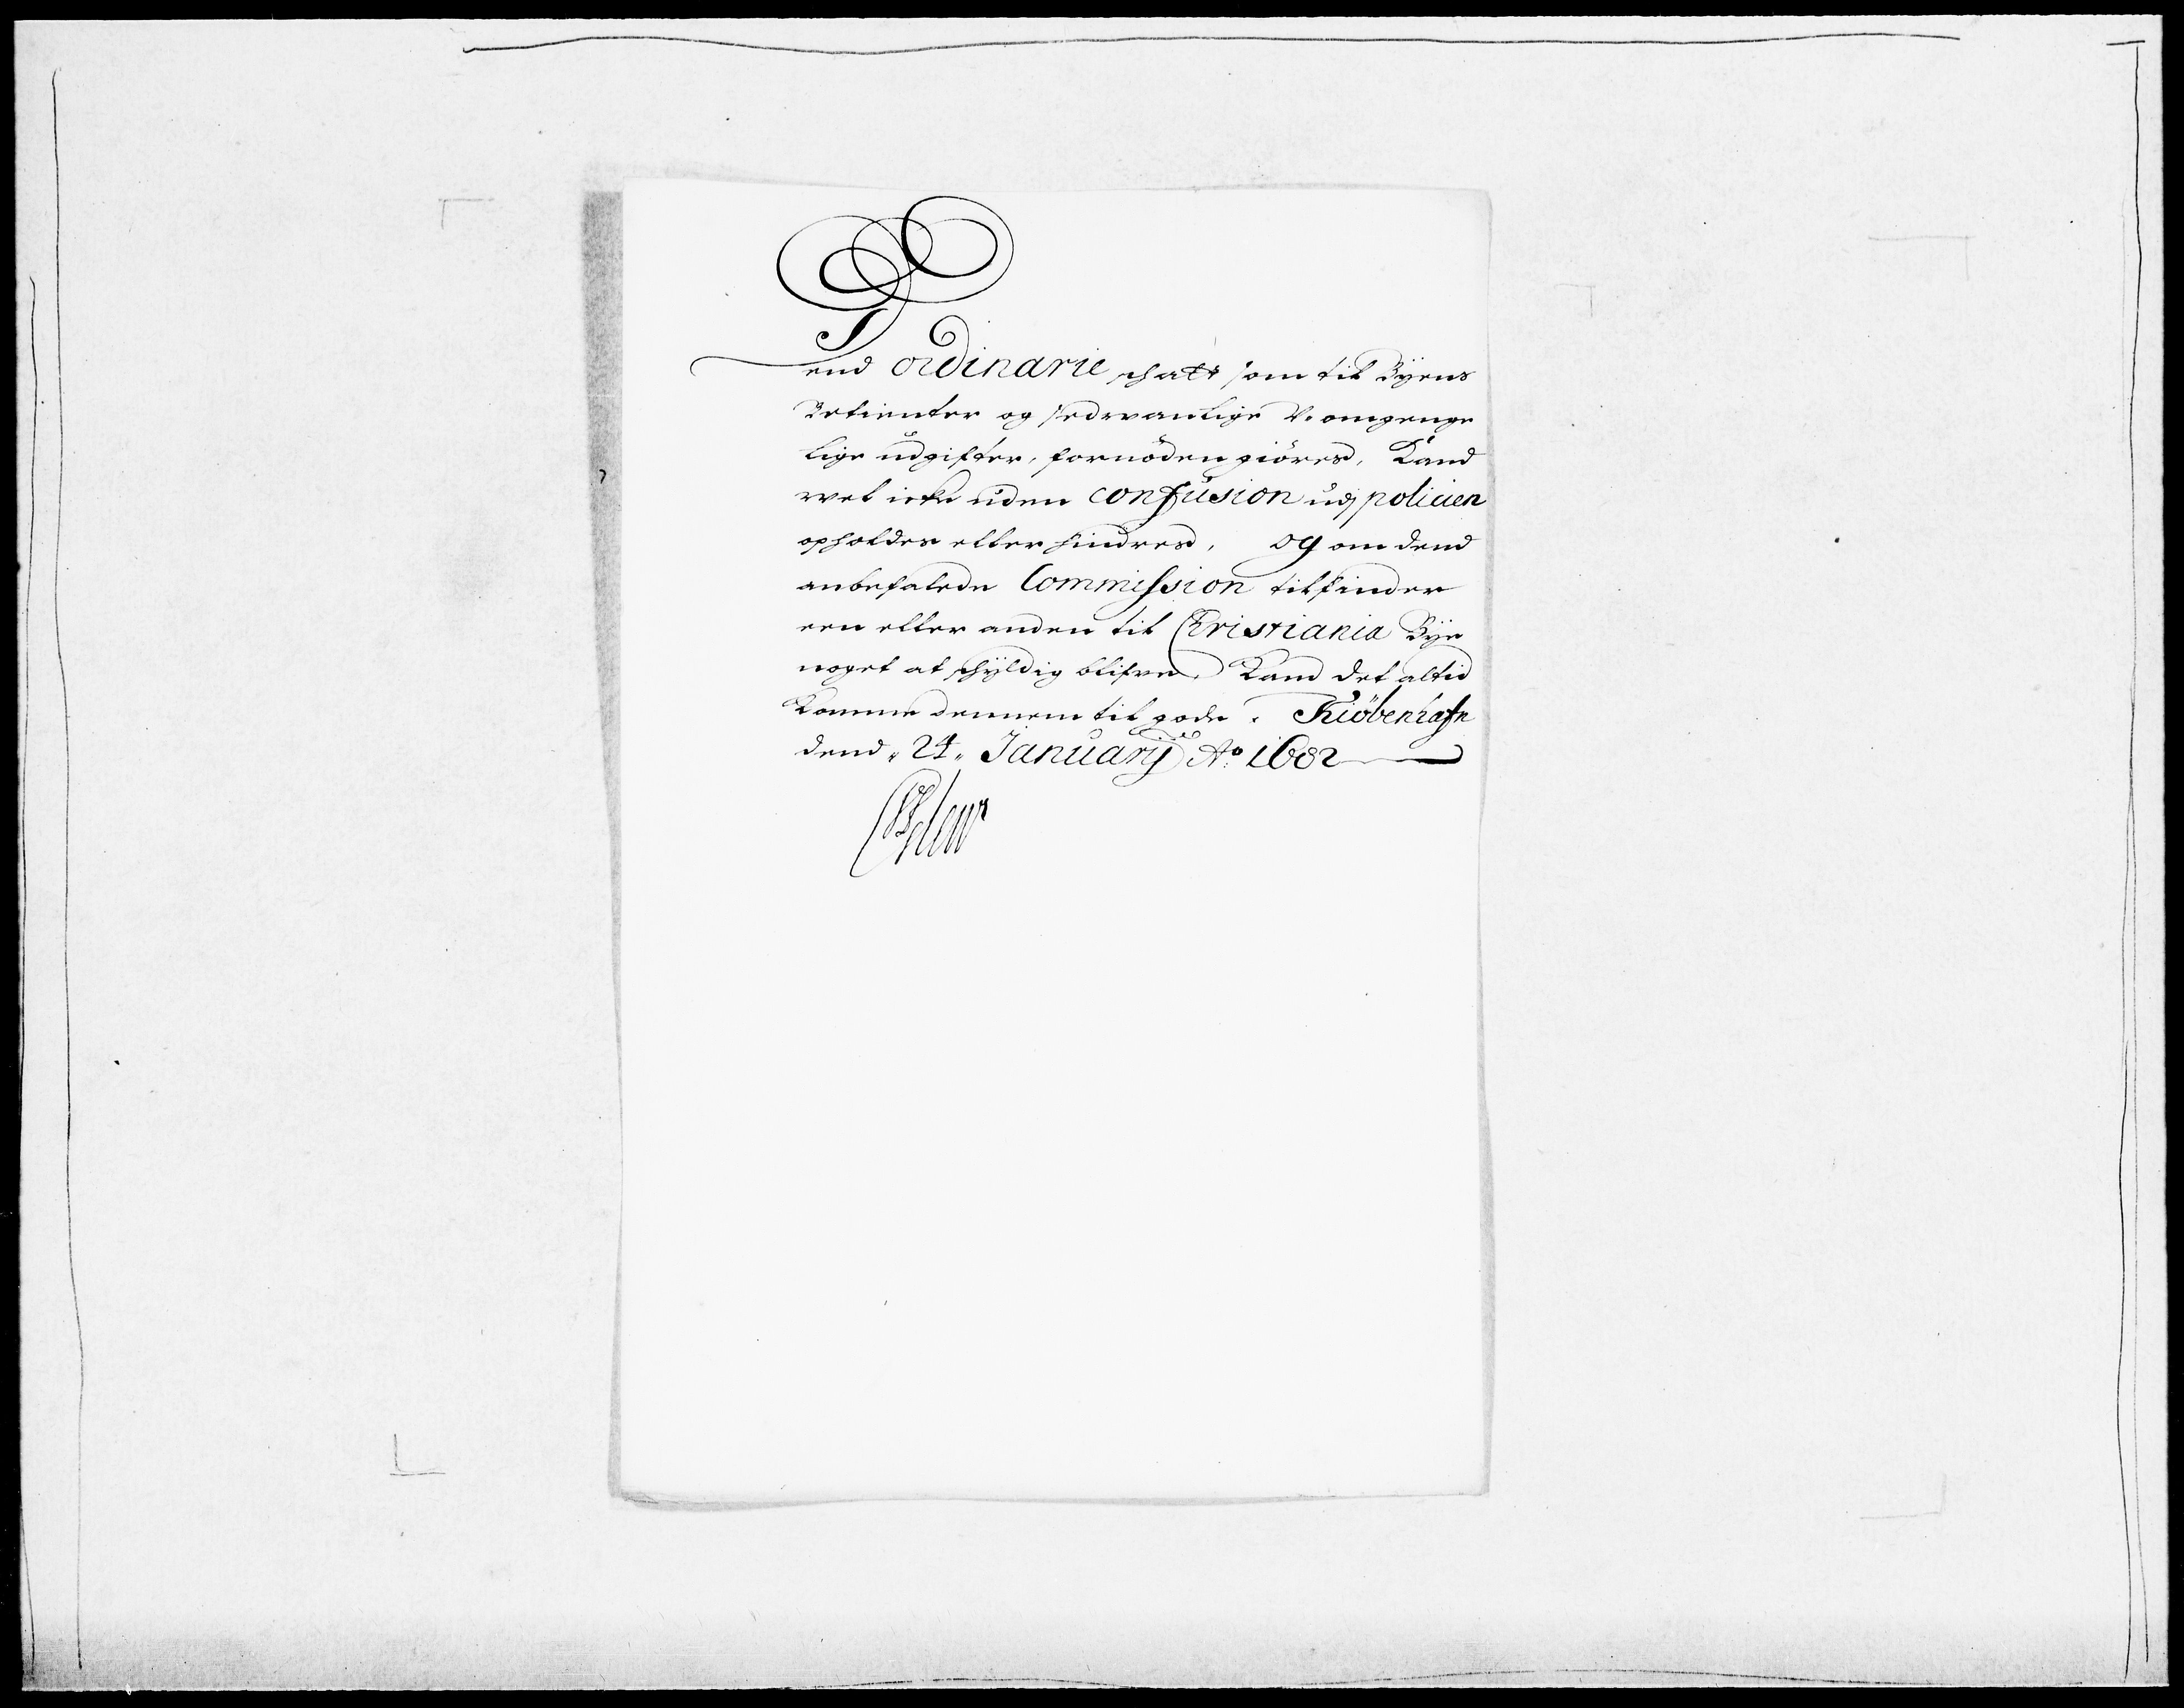 Dend ordinarie schatt som til Byens
Betienter og sedvanlige Uomgenge
lige udgifter, fornöden giöres, Kand
vel icke uden confusion udj policien
opholdes eller hindres, og om dend
anbefalede Commission tilfinder
een eller anden til Christiania Bye
noget at schyldig blifve, Kand det altid
Komme dennem til gode. Kiöbenhafn
dend 24 Januarij Ao 1682